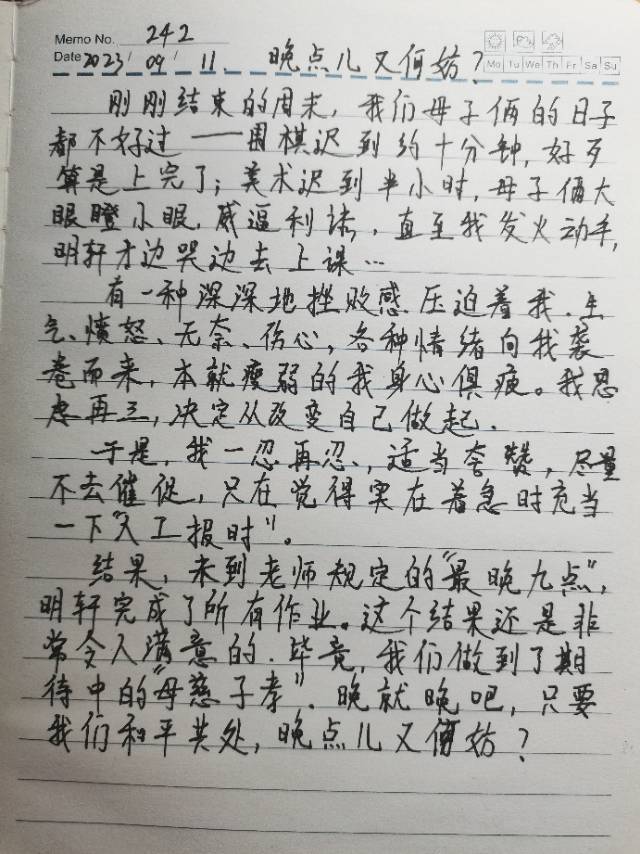 Memo No. 242
Date 2023/09/11. 晚点儿又何妨?
Mo Tu We Th Fr Sa Su
刚刚结束的周末,我们母子俩的日子
都不好过——围棋迟到约十分钟,好歹
算是上完了;美术迟到半小时,母子俩大
眼瞪小眼,威逼利诱,直至我发火动手,
明轩才边哭边去上课…
有一种深深地挫败感压迫着我.生
气、愤怒、无奈、伤心,各种情绪向我袭
卷而来,本就瘦弱的我身心俱疲。我思
虑再三,决定从改变自己做起.
于是,我一忍再忍,适当夸赞,尽量
不去催促,只在觉得实在着急时充当
一下"人工报时"。
结果,未到老师规定的"最晚九点",
明轩完成了所有作业。这个结果还是非
常令人满意的.毕竟,我们做到了期
待中的"母慈子孝".晚就晚吧,只要
我们和平共处,晚点儿又何妨?